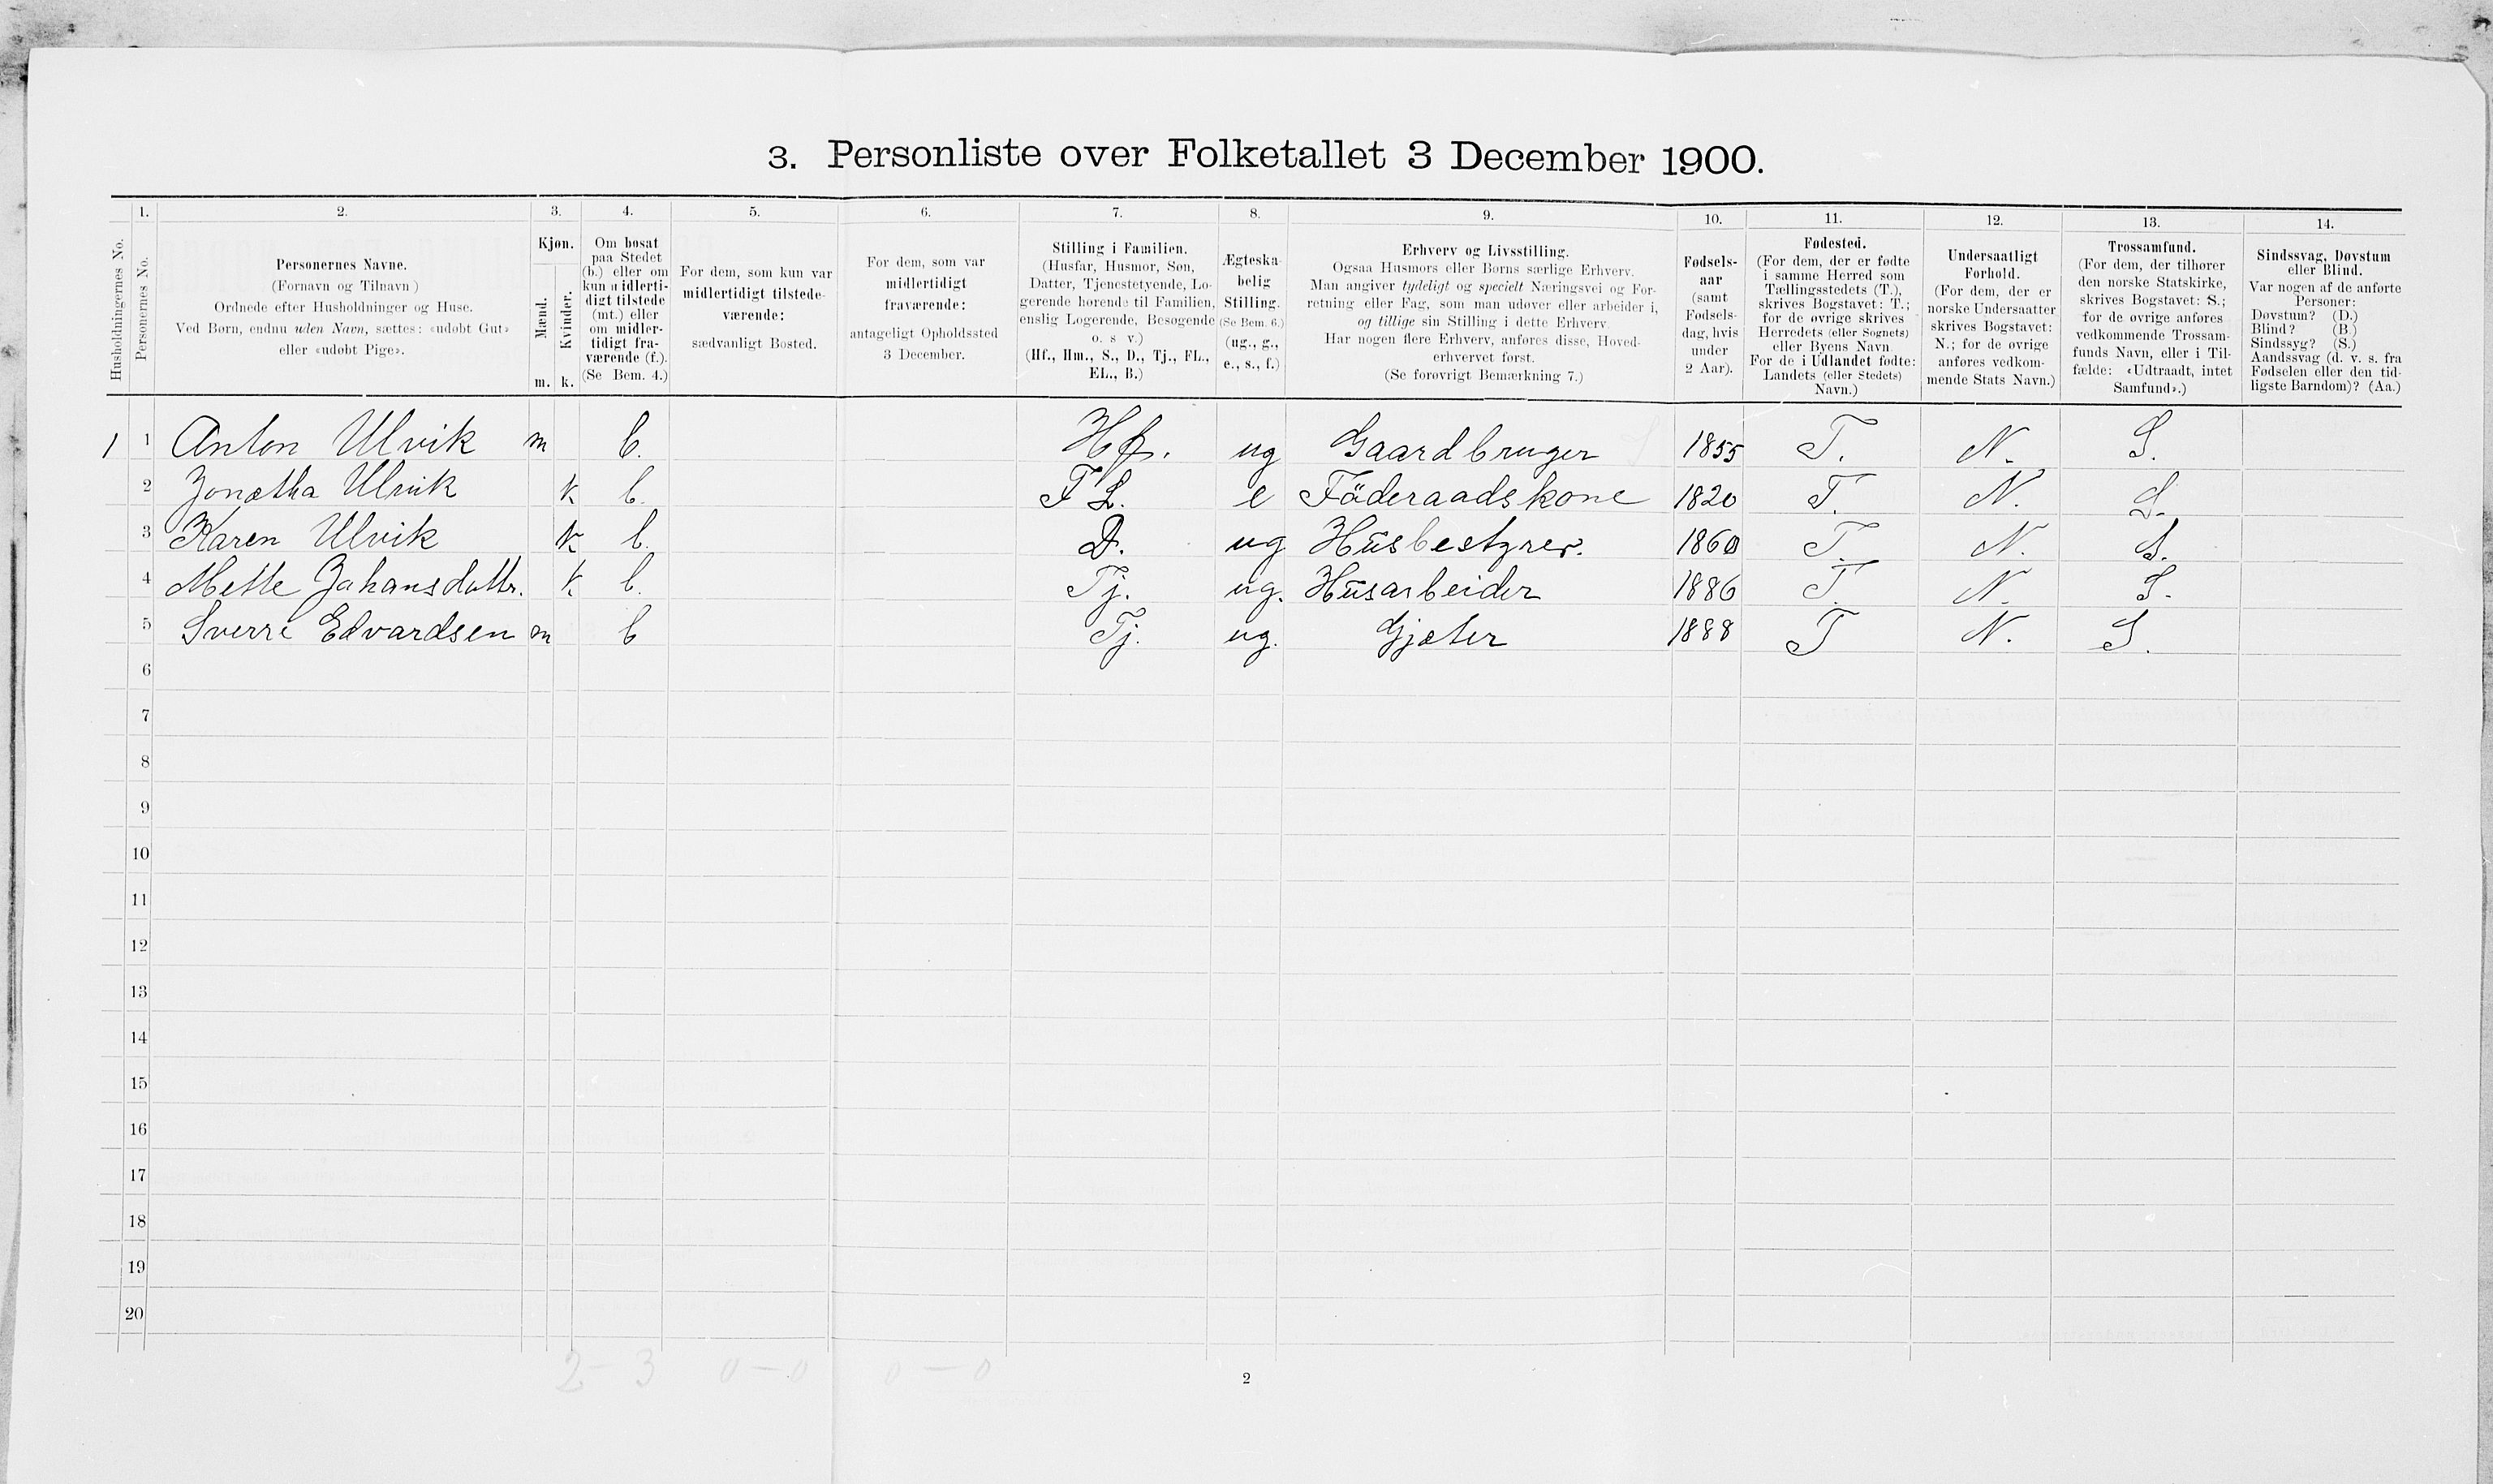 3. Personliste over Folketallet 3 December 1900.
1. 2. 3. 4. 5. 6. 7. 8. 9. 10. 11. 12. 13. 14.
Husholdningernes No.
Personernes No.
Personernes Navne.
(Fornavn og Tilnavn)
Ordnede efter Husholdninger og Huse.
Ved Børn, endnu uden Navn, sættes: «udøbt Gut»
eller «udøbt Pige».
Kjøn.
Mænd.
Kvinder.
m. k.
Om bosat
paa Stedet
(b.) eller om
kun midlerti-
digt tilstede
(mt.) eller
om midler-
tidigt fra-
værende (f.).
(Se Bem. 4.)
For dem, som kun var
midlertidigt tilstede-
værende:
sædvanligt Bosted.
For dem, som var
midlertidigt
fraværende:
antageligt Opholdssted
3 December.
Stilling i Familien.
(Husfar, Husmor, Søn,
Datter, Tjenestetyende, Lo-
gerende hørende til Familien,
enslig Logerende, Besøgende
o. s v.)
(Hf., Hm., S., D., Tj., FL.,
EL., B.)
Ægteska-
belig
Stilling.
(Se Bem. 6.)
(ug., g.,
e., s., f.)
Erhverv og Livsstilling.
Ogsaa Husmors eller Børns særlige Erhverv.
Man angiver tydeligt og specielt Næringsvei og For-
retning eller Fag, som man udøver eller arbeider i,
og tillige sin Stilling i dette Erhverv.
Har nogen flere Erhverv, anføres disse, Hoved-
erhvervet først.
(Se forøvrigt Bemærkning 7.)
Fødsels-
aar
(samt
Fødsels-
dag, hvis
under
2 Aar).
Fødested.
(For dem, der er fødte
i samme Herred som
Tællingsstedets (T.),
skrives Bogstavet: T.;
for de øvrige skrives
Herredets (eller Sognets)
eller Byens Navn.
For de i Udlandet fødte:
Landets (eller Stedets)
Navn.)
Undersaatligt
Forhold.
(For dem, der er
norske Undersaatter
skrives Bogstavet:
N.; for de øvrige
anføres vedkom-
mende Stats Navn.)
Trossamfund.
(For dem, der tilhører
den norske Statskirke,
skrives Bogstavet: S.;
for de øvrige anføres
vedkommende Trossam-
funds Navn, eller i Til-
fælde: «Udtraadt, intet
Samfund».)
Sindssvag, Døvstum
eller Blind.
Var nogen af de anførte
Personer:
Døvstum? (D.)
Blind? (B.)
Sindssyg? (S.)
Aandssvag (d. v. s. fra
Fødselen eller den tid-
ligste Barndom)? (Aa.)
1 1 Anton Ulvik m b. Hf. ug Gaardbruger 1855 T. N. S.
2 Jonetha Ulvik k b. F L. e Föderaadskone 1820 T. N. S.
3 Karen Ulvik k b. D. ug Husbestyrer. 1860 T. N. S.
4 Mette Johansdattr. k b. Tj. ug. Husarbeider 1886 T. N. S.
5 Sverre Edvardsen m b Tj. ug. Gjæter 1888 T N. S.
6
7
8
9
10
11
12
13
14
15
16
17
18
19
20
2 - 3 0 - 0 0 - 0
2